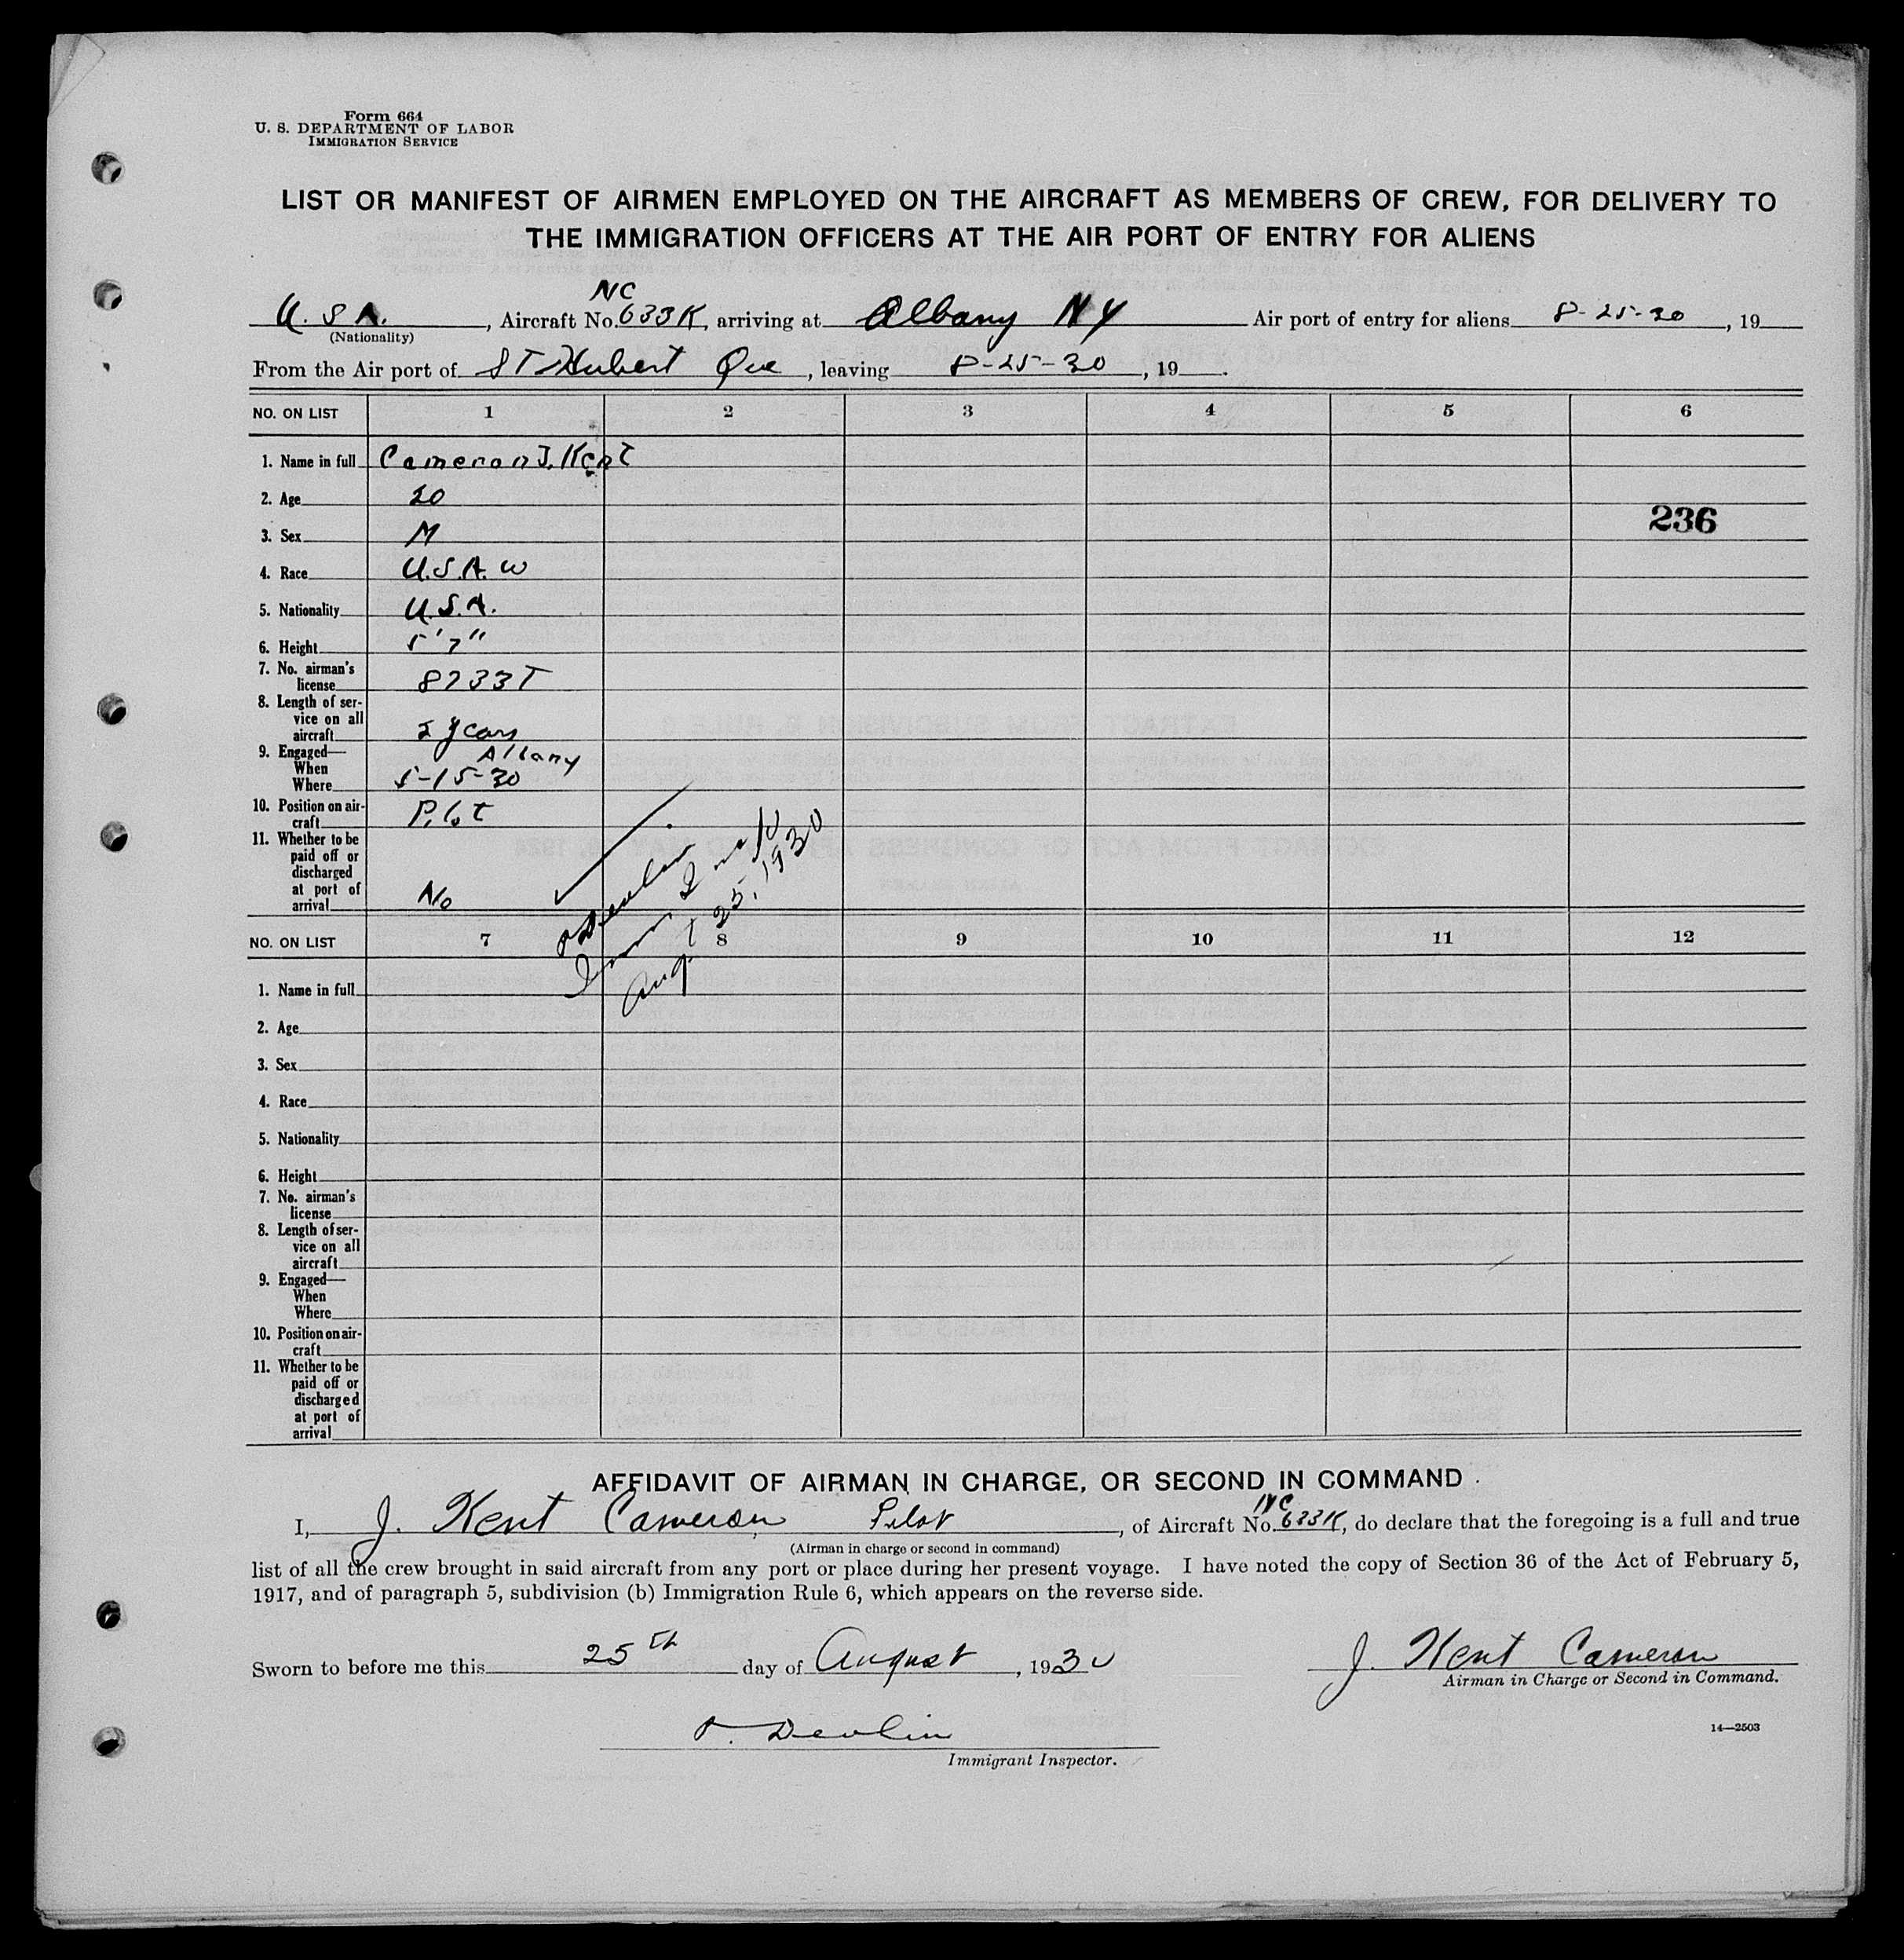 Form 664
U. S. DEPARTMENT OF LABOR
IMMIGRATION SERVICE
LIST OR MANIFEST OF AIRMEN EMPLOYED ON THE AIRCRAFT AS MEMBERS OF CREW, FOR DELIVERY TO
THE IMMIGRATION OFFICERS AT THE AIR PORT OF ENTRY FOR ALIENS
NC
U.S.A., Aircraft No. 633K, arriving at Albany NY Air port of entry for aliens 8-25-30, 19
(Nationality)
From the Air port of St Hubert Que, leaving 8-25-30, 19 .
NO. ON LIST 1 2 3 4 5 6
1. Name in full Cameron J. Kent
2. Age 20
236
3. Sex M
4. Race U.S.A. W
5. Nationality U.S.A.
6. Height 5'7"
7. No. airman's
license 8733T
8. Length of ser-
vice on all
aircraft 2 years
9. Engaged— Albany
When
Where 5-15-30
10. Position on air-
craft Pilot
11. Whether to be
paid off or
discharged
at port of
arrival No
P. Devlin
Aug. 25, 1930
NO. ON LIST 7 8 9 10 11 12
1. Name in full
2. Age
3. Sex
4. Race
5. Nationality
6. Height
7. No. airman's
license
8. Length of ser-
vice on all
aircraft
9. Engaged—
When
Where
10. Position on air-
craft
11. Whether to be
paid off or
discharged
at port of
arrival
AFFIDAVIT OF AIRMAN IN CHARGE, OR SECOND IN COMMAND
NC
I, J. Kent Cameron Pilot, of Aircraft No. 633K, do declare that the foregoing is a full and true
(Airman in charge or second in command)
list of all the crew brought in said aircraft from any port or place during her present voyage. I have noted the copy of Section 36 of the Act of February 5,
1917, and of paragraph 5, subdivision (b) Immigration Rule 6, which appears on the reverse side.
Sworn to before me this 25th day of August, 1930 J. Kent Cameron
Airman in Charge or Second in Command.
P. Devlin
14—2503
Immigrant Inspector.